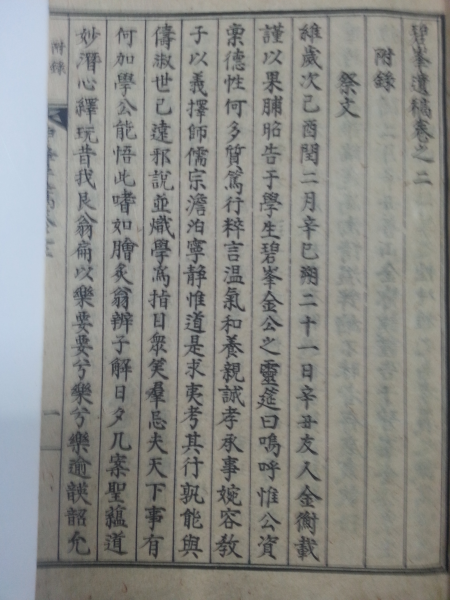 碧峯遺稿卷之二
附錄
祭文
維歲次己酉閏二月辛巳朔二十一日辛丑友人金衡載
謹以果脯昭告于學生碧峯金公之靈筵曰嗚呼惟公資
稟德性何多質篤行粹言溫氣和養親誠孝承事婉容教
子以義擇師儒宗澹泊寧靜惟道是求夷考其行孰能與
儔淑世已遠邪說並熾學爲指目衆笑羣忌夫天下事有
何加學公能悟此嗜如膾炙翁辨子解日夕几案聖蘊道
妙潛心繹玩昔我艮翁扁以樂要要兮樂兮樂逾韺韶允
附錄
一